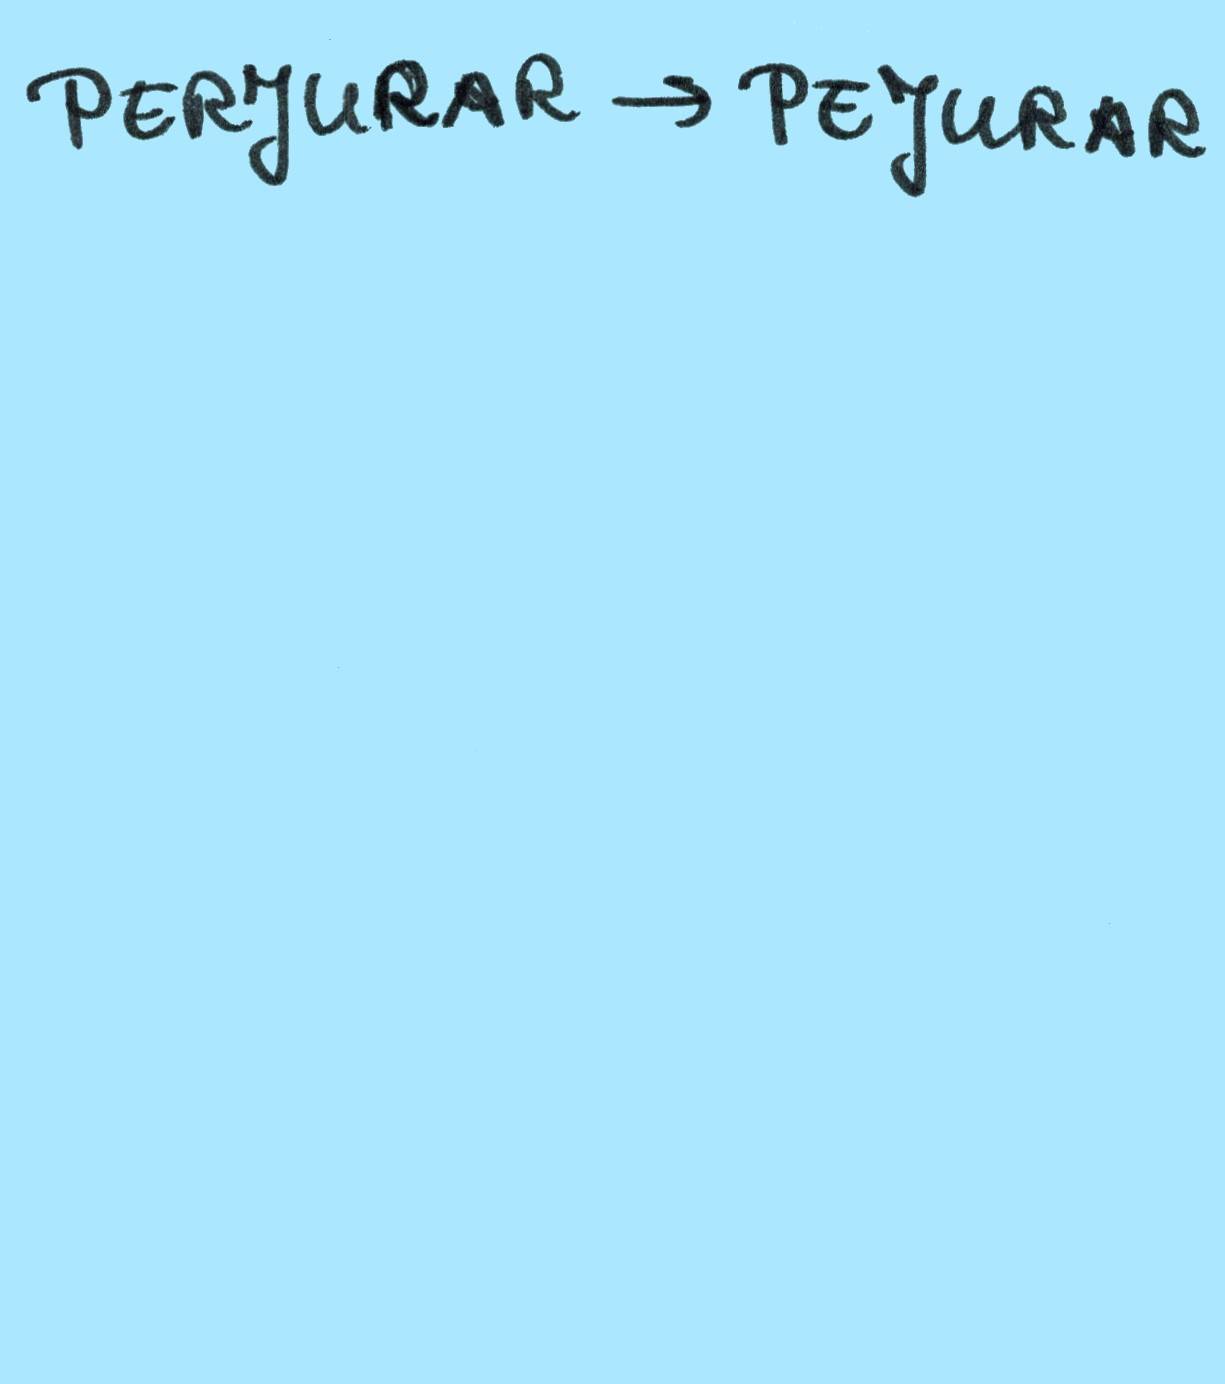 PERJURAR → PEJURAR